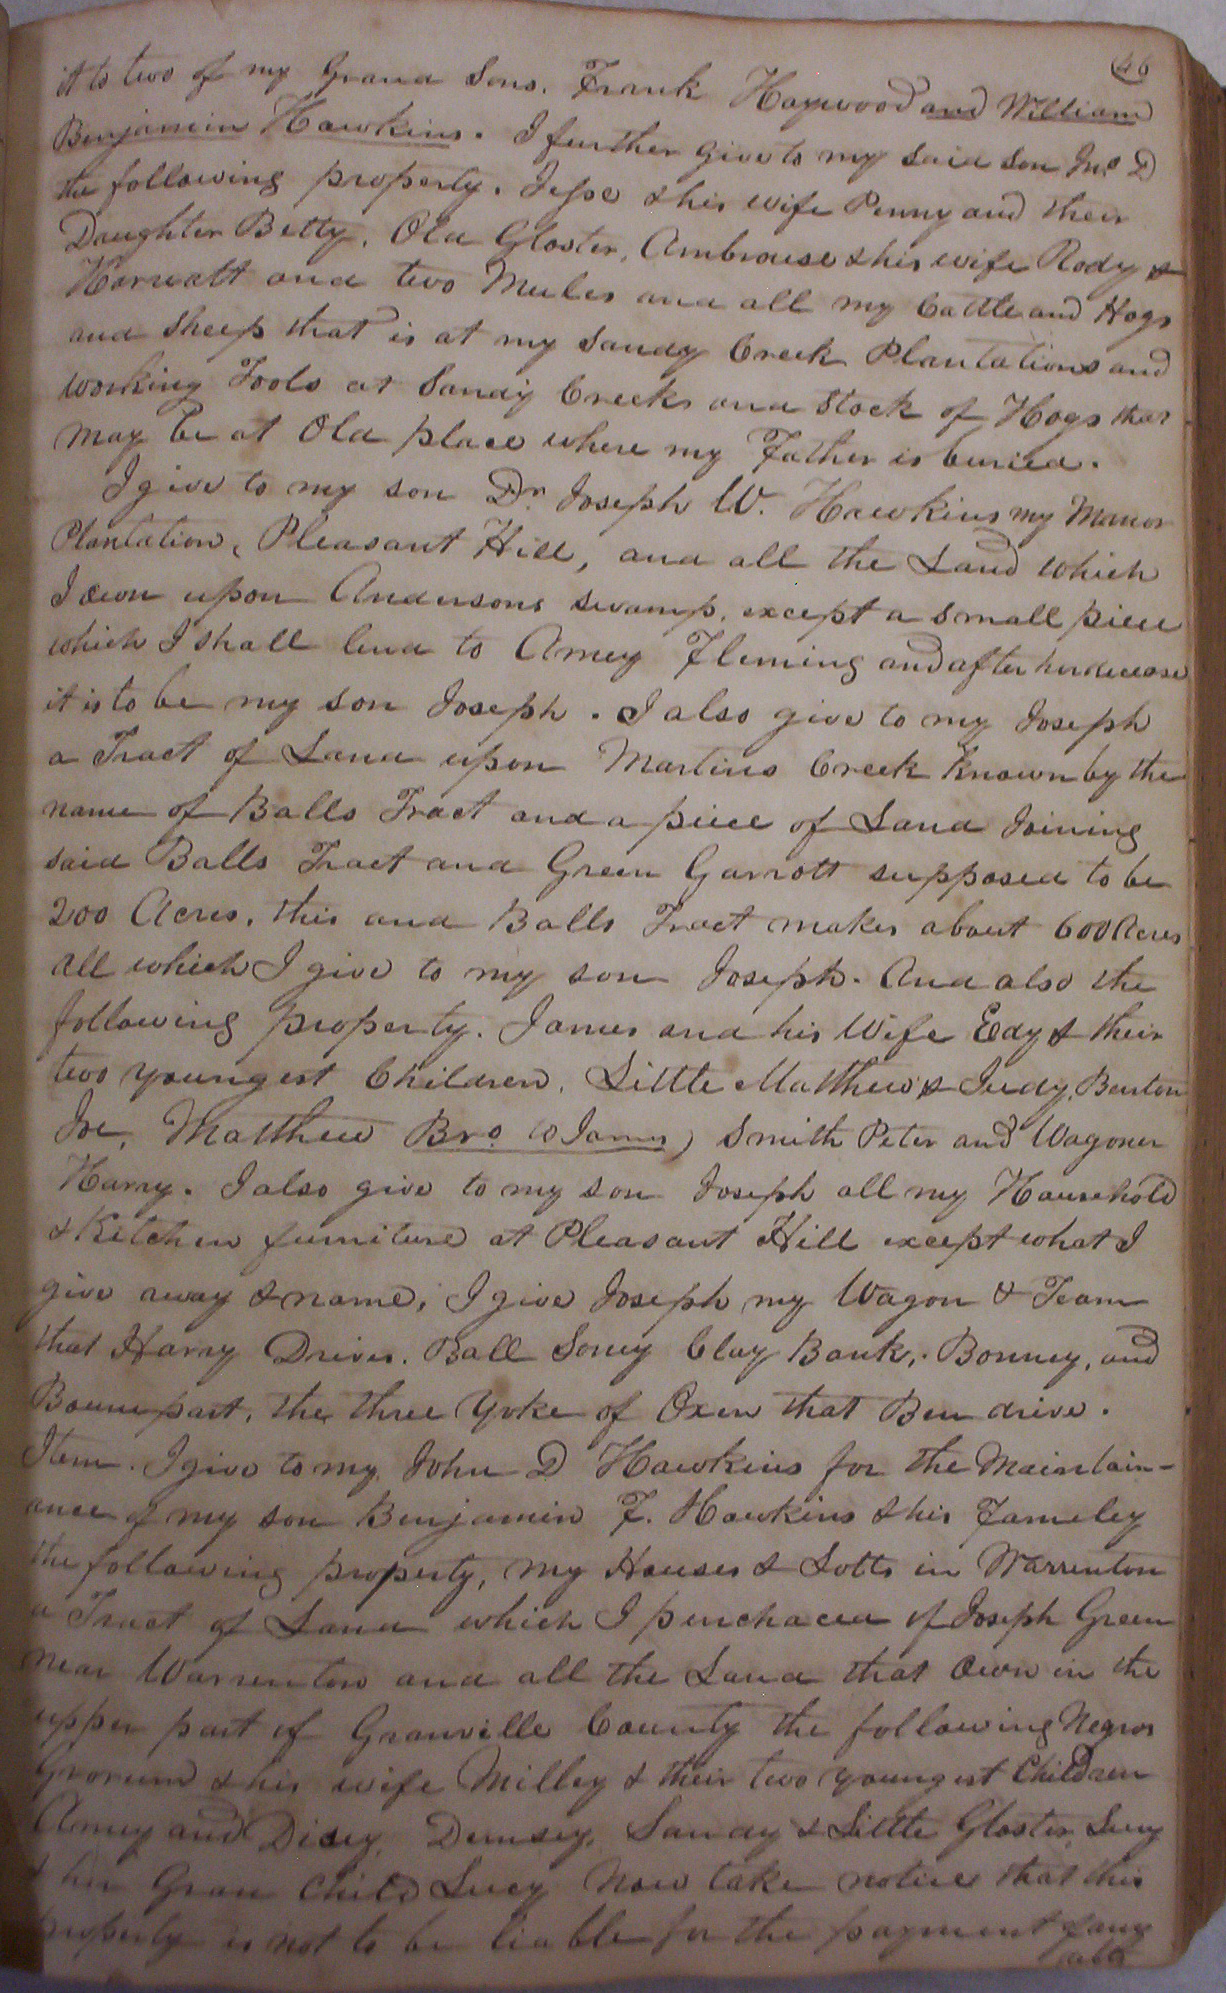 46
it to two of my Grand Sons. Frank Haywood and William
Benjamin Hawkins. I further give to my said son Jno D
the following property. Jesse & his wife Penny and their
Daughter Betty, Old Gloster, Ambrouse & his wife Rody &
Harwatt and two Mules and all my Cattle and Hogs
and Sheep that is at my Sandy Creek Plantations and
working Tools at Sandy Creeks and Stock of Hogs that
may be at Old place where my Father is buried.
I give to my son Dr. Joseph W. Hawkins my Manor
Plantation, Pleasant Hill, and all the Land which
I own upon Andersons swamp, except a small piece
which I shall lend to Amey Fleming and after her decease
it is to be my son Joseph. I also give to my Joseph
a Tract of Land upon Martins Creek known by the
name of Balls Tract and a piece of Land Joining
said Balls Tract and Green Garrott supposed to be
200 Acres, this and Balls Tract makes about 600 Acres
all which I give to my son Joseph. And also the
following property. James and his Wife Edy & their
two youngest Children, Little Matthew & Judy, Burton
Joe, Matthew Bro. to James) Smith Peter and Wagoner
Harry. I also give to my son Joseph all my Household
& Kitchen furniture at Pleasant Hill except what I
give away & name, I give Joseph my Wagon & Team
that Harry Drives. Ball Soney Clay Bank, Bonney, and
Bounepart, the three Yoke of Oxen that Ben drive.
Item. I give to my John D Hawkins for the Maintain-
ance of my son Benjamin F. Hawkins & his Fameley
the following property, my Houses & Lotts in Warrenton
a Tract of Land which I penchaced of Joseph Green
near Warrenton and all the Land that Own in the
upper part of Granville County the following Negros
& his wife Milley & their two youngest Children
Amey and Dicey, Demsey, Sanday & Little Gloster, Lucy
& her Gran Child Lucy Now take notice that this
property is not to be liable for the payment of any